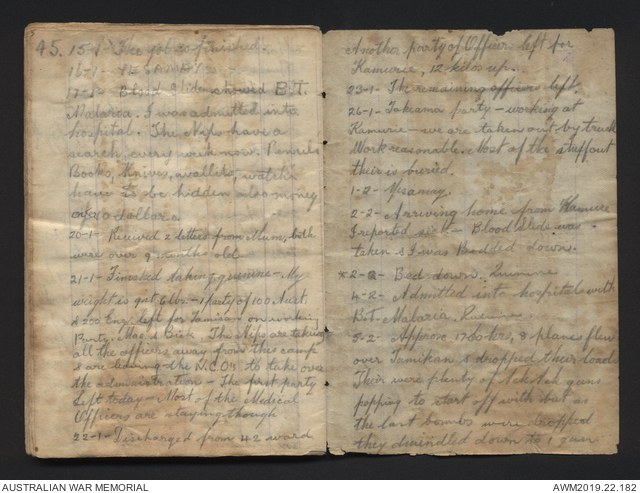 45. 15-1- The job is finished.
16-1-
17-1- Blood Slide showed B.T.
Malaria. I was admitted into
hospital. The Nips have a
search every week now. Pencils
Books, Knives, wallets, watches
have to be hidden also money
over 10 dollars.
20-1- Received 2 letters from Mum, both
were over 9 months old
21-1- Finished taking quinine - My
weight is 9st 6lbs - 1 party of 100 Aust.
& 200 Eng. left for on working
Party. Mac & The Nips are taking
all the officers away from this camp
& are leaving the N.C.O's to take over
the administration - The first party
left today - Most of the Medical
Officers are staying though
22-1- Discharged from 42 ward
Another party of Officers left for
Kamurie, 12 kilos up.
23-1- The remaining officers left.
26-1- party - working at
Kamurie - we are taken out by truck
Work reasonable. Most of the stuff out
their is buried.
1-2-
2-2- Arriving home from Kamurie
I reported sick - Blood Slide was
taken & I was Bedded down.
*2-2- Bed down.
4-2- Admitted into hospital with
B.T. Malaria.
5-2- Approx. 1730 hrs, 8 planes flew
over Tamikan & dropped their load
Their were plenty of guns
popping to start off with but as
the last bombs were dropped
they dwindled down to 1 gun
AUSTRALIAN WAR MEMORIAL
AWM2019.22.182